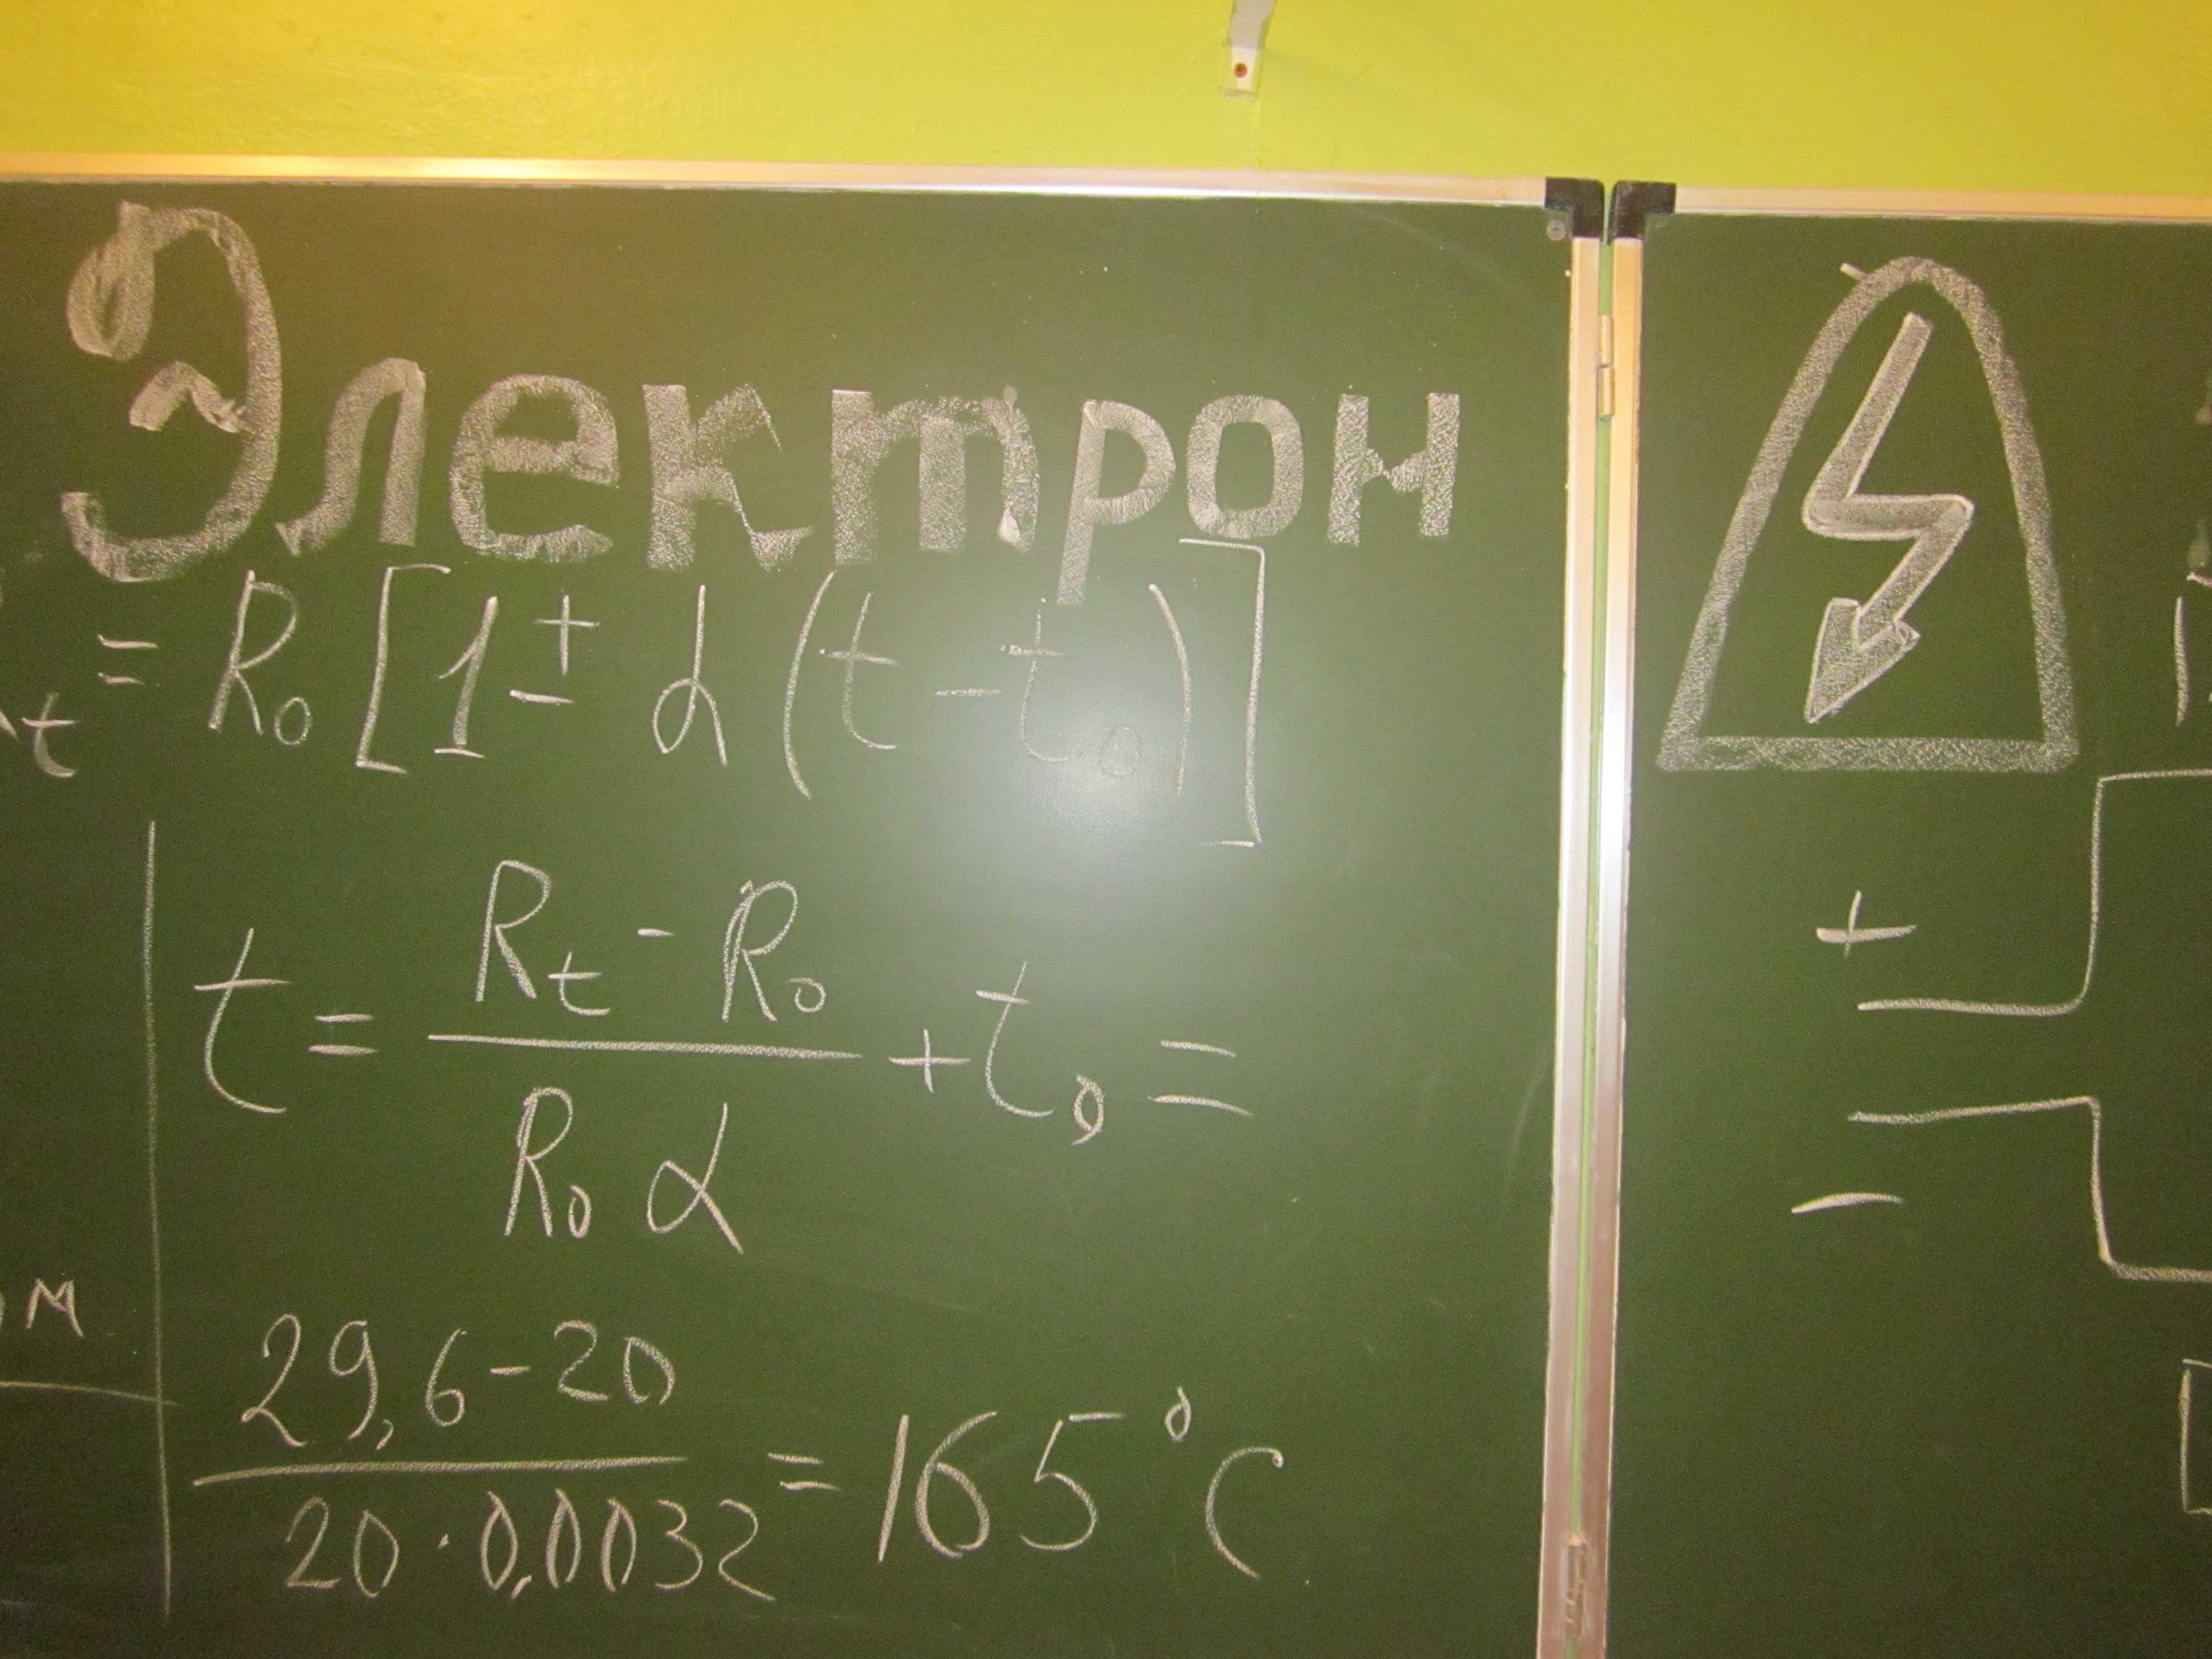 Электрон
t = R₀ [1 ± α (t - t₀)]
t = (Rₜ - R₀) / (R₀ α) + t₀ =
ом
(29,6 - 20) / (20 · 0,0032) = 165°C
+
-